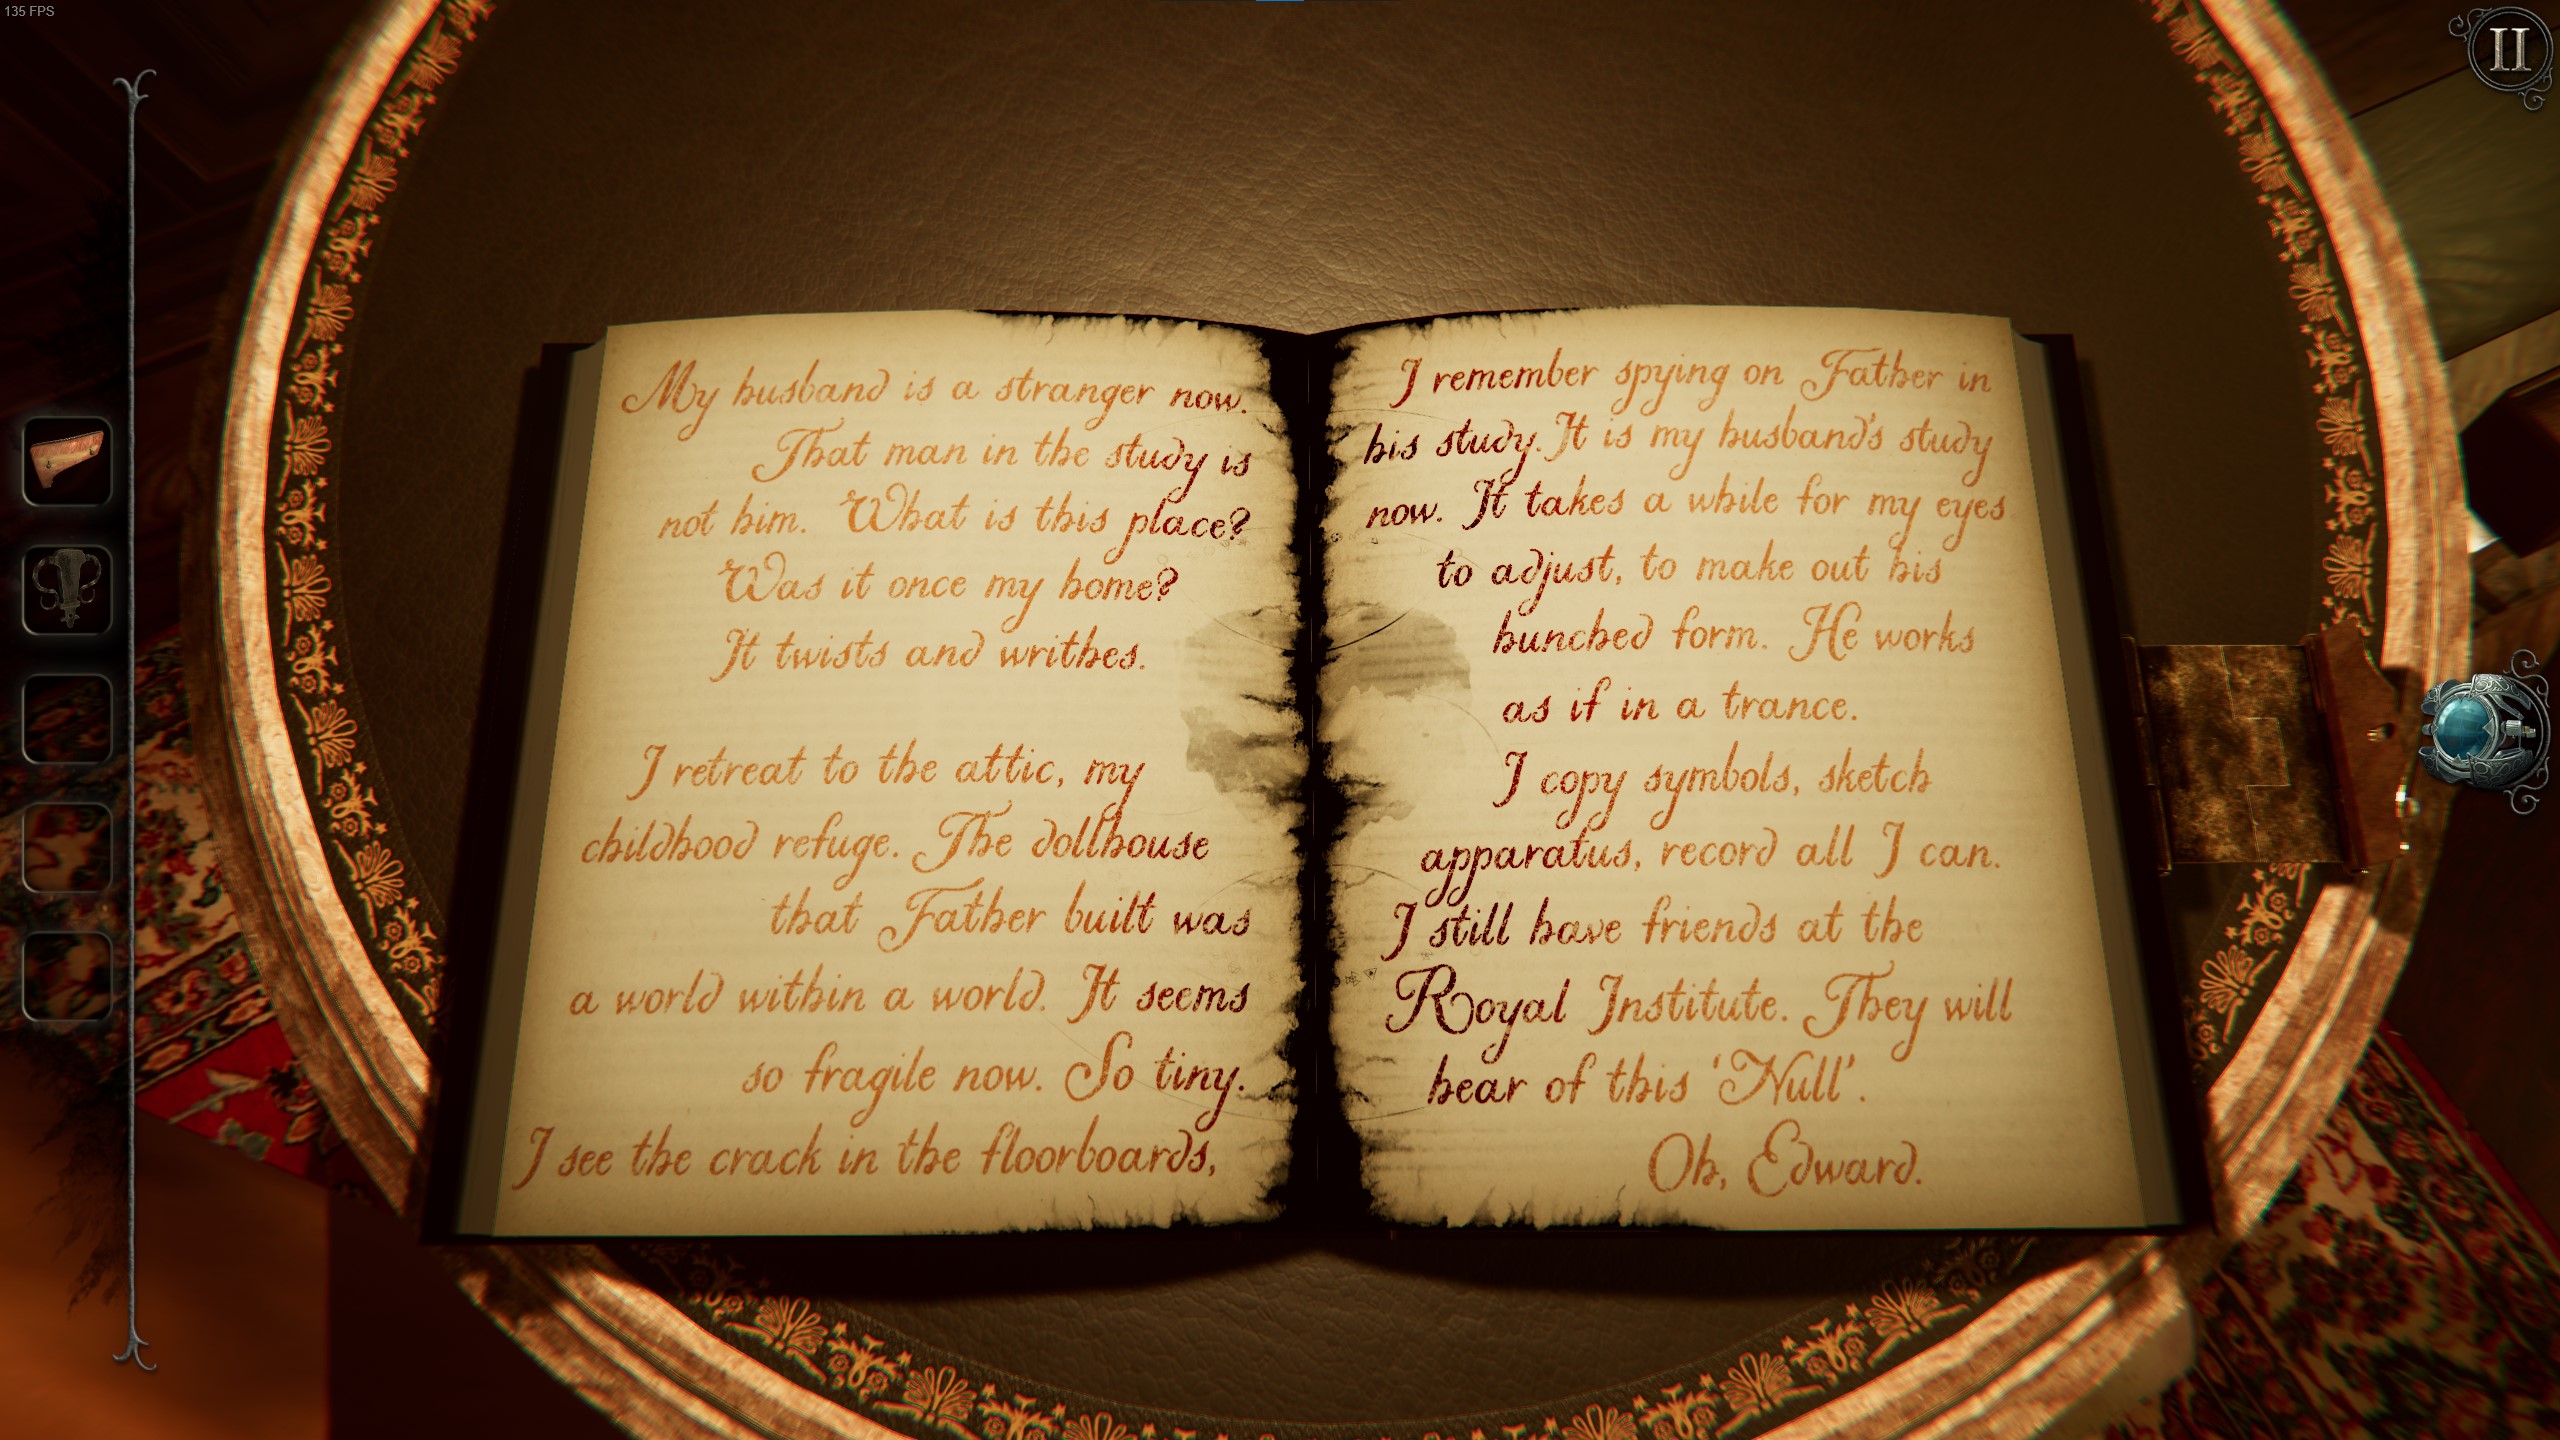 135 FPS
II
My husband is a stranger now.
That man in the study is
not him. What is this place?
Was it once my home?
It twists and writhes.
I retreat to the attic, my
childhood refuge. The dollhouse
that Father built was
a world within a world. It seems
so fragile now. So tiny.
I see the crack in the floorboards,
I remember spying on Father in
his study. It is my husband's study
now. It takes a while for my eyes
to adjust, to make out his
hunched form. He works
as if in a trance.
I copy symbols, sketch
apparatus, record all I can.
I still have friends at the
Royal Institute. They will
hear of this 'Null'.
Oh, Edward.